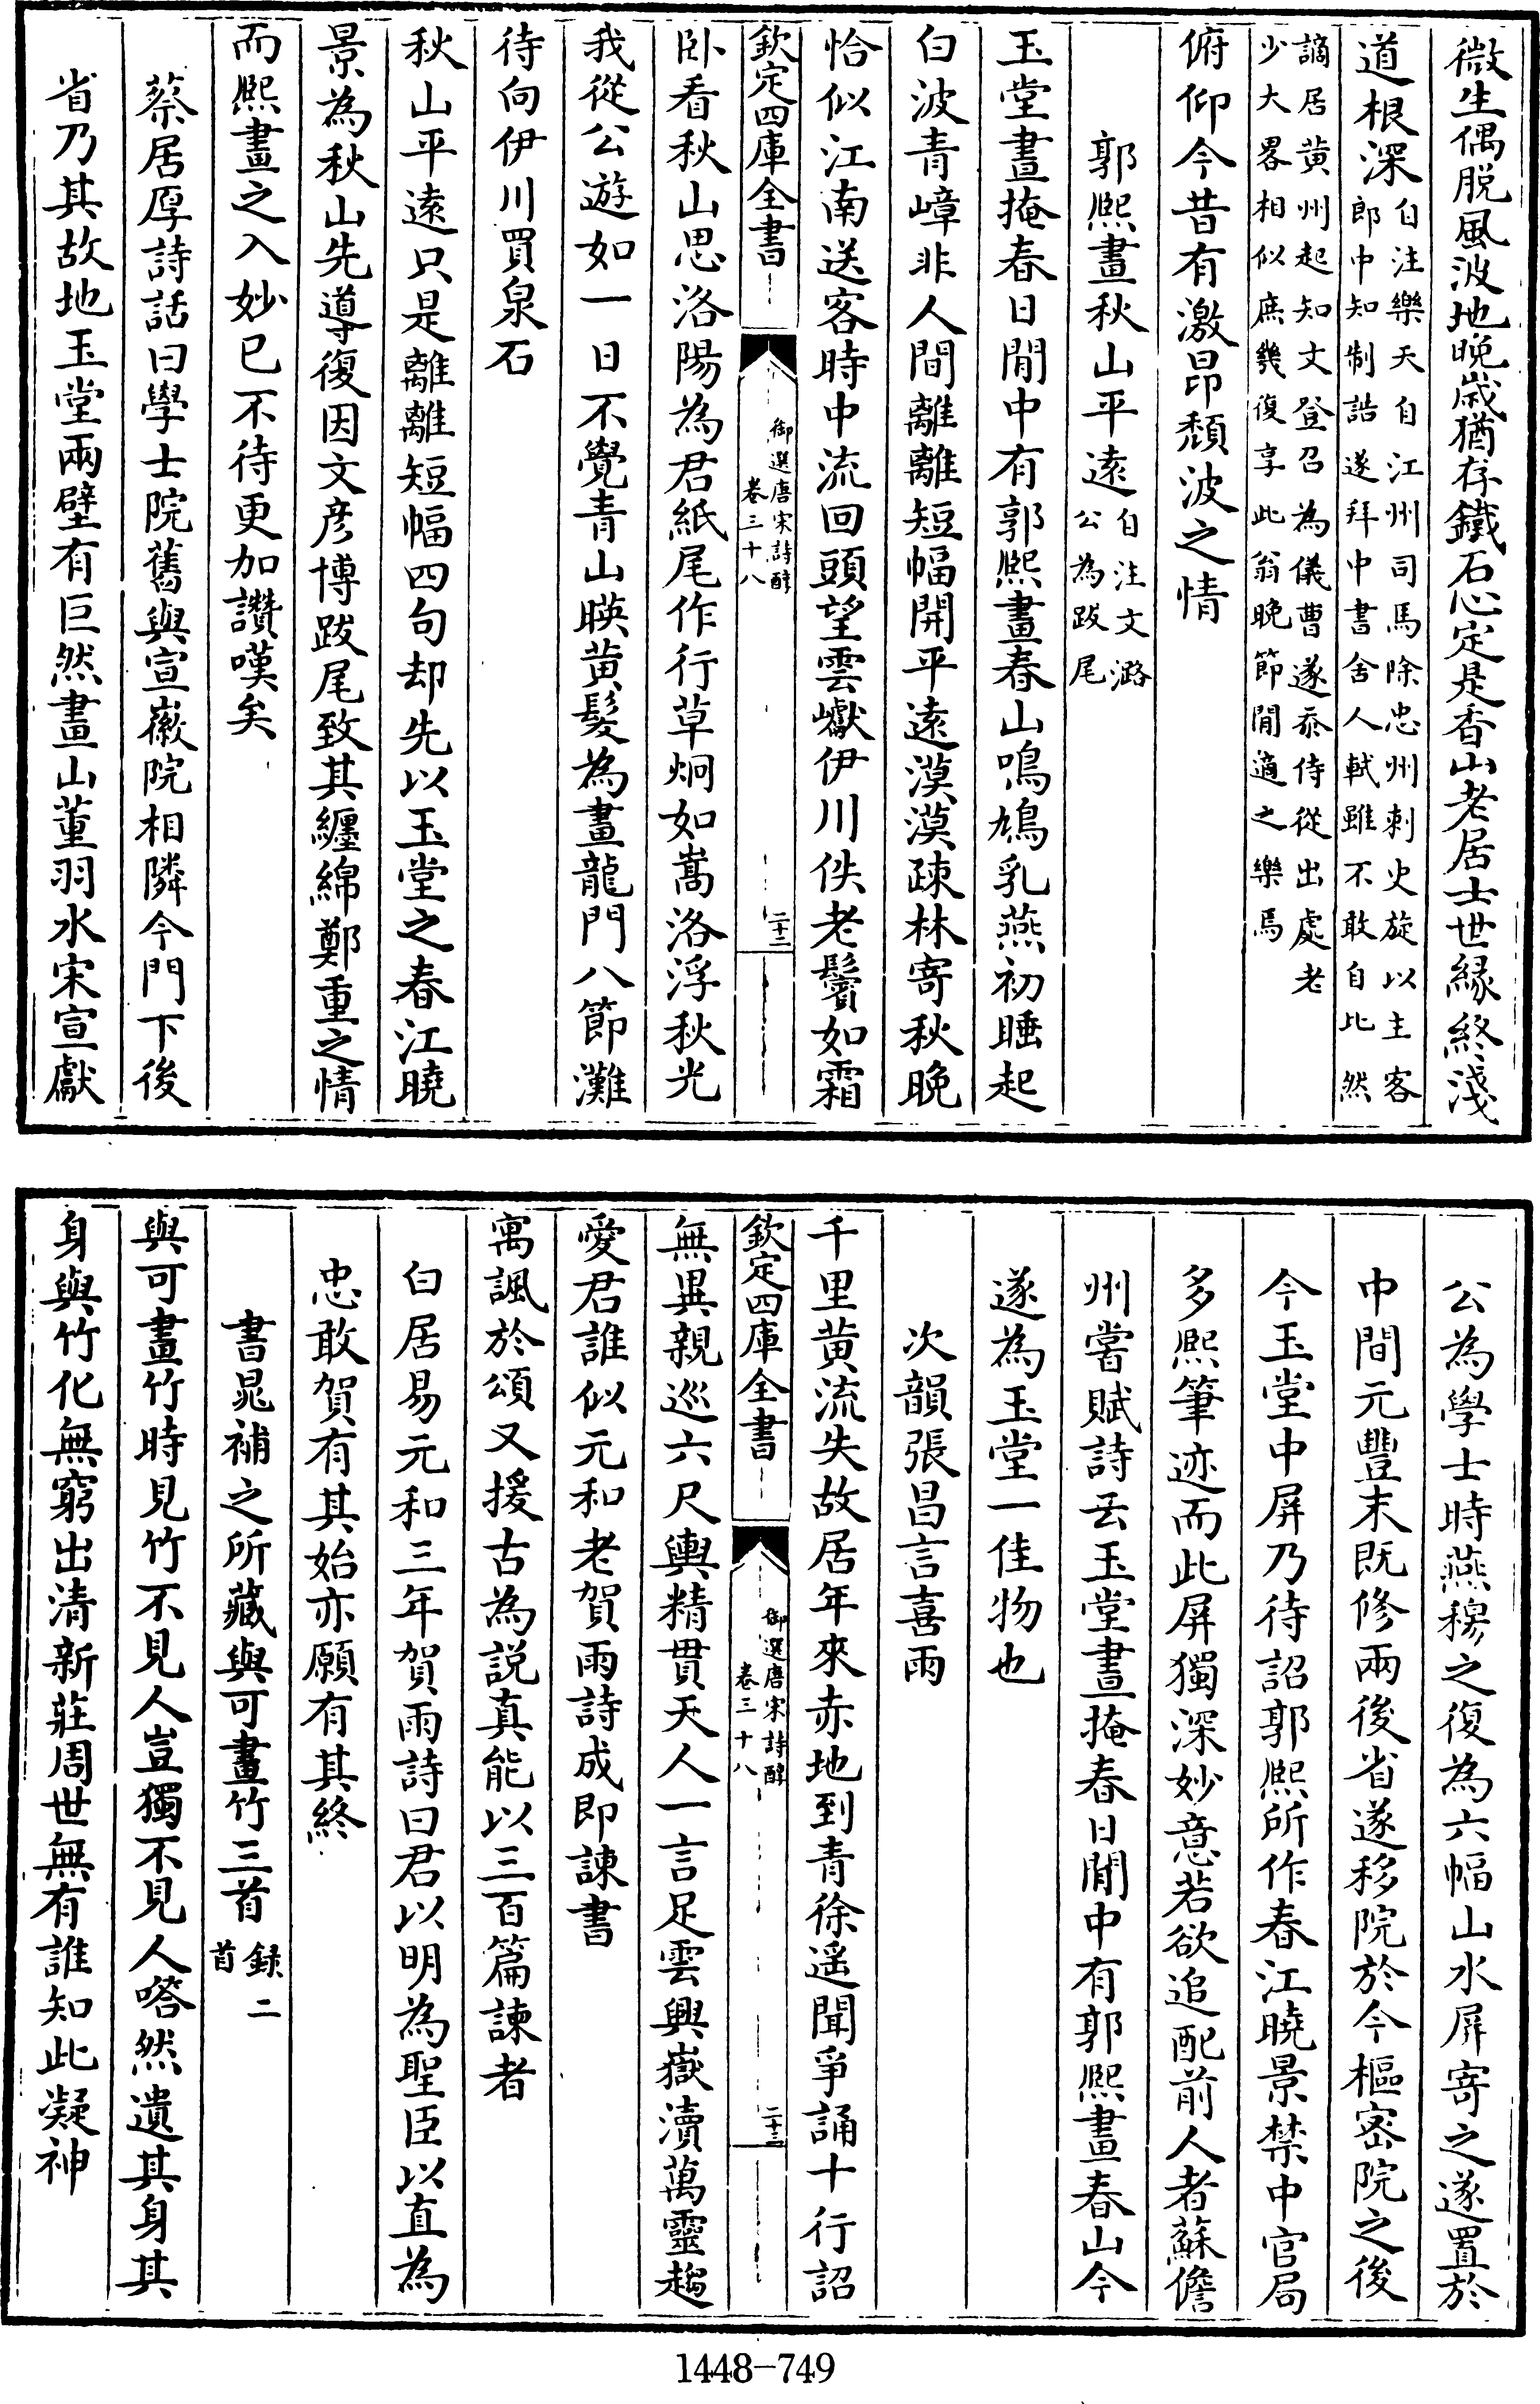 微生偶脱風波地晚歲猶存鐵石心定是香山老居士世緣終淺
道根深自注樂天自江州司馬除忠州刺史旋以主客
郎中知制誥遂拜中書舍人軾雖不敢自比然
謫居黄州起知文登召為儀曹遂忝侍從出處老
少大畧相似庶幾復享此翁晚節閒適之樂焉
俯仰今昔有激昂頽波之情
郭熙畫秋山平遠自注文潞
公為跋尾
玉堂晝掩春日閒中有郭熙畫春山鳴鳩乳燕初睡起
白波青嶂非人間離離短幅開平遠漠漠疎林寄秋晚
恰似江南送客時中流回頭望雲巘伊川佚老鬢如霜
欽定四庫全書
御選唐宋詩醇
卷三十八
二十二
卧看秋山思洛陽為君紙尾作行草炯如嵩洛浮秋光
我從公遊如一日不覺青山暎黄髮為畫龍門八節灘
待向伊川買泉石
秋山平遠只是離離短幅四句却先以玉堂之春江曉
景為秋山先導復因文彦博跋尾致其纏綿鄭重之情
而熙畫之入妙已不待更加讚嘆矣
蔡居厚詩話曰學士院舊與宣徽院相隣今門下後
省乃其故地玉堂兩壁有巨然畫山董羽水宋宣獻
公為學士時燕穆之復為六幅山水屏寄之遂置於
中間元豐末既修兩後省遂移院於今樞密院之後
今玉堂中屏乃待詔郭熙所作春江曉景禁中官局
多熙筆迹而此屏獨深妙意若欲追配前人者蘇儋
州嘗賦詩云玉堂晝掩春日閒中有郭熙畫春山今
遂為玉堂一佳物也
次韻張昌言喜雨
千里黄流失故居年來赤地到青徐遥聞爭誦十行詔
欽定四庫全書
御選唐宋詩醇
卷三十八
二十三
無異親巡六尺輿精貫天人一言足雲興嶽瀆萬靈趨
愛君誰似元和老賀雨詩成即諫書
寓諷於頌又援古為説真能以三百篇諫者
白居易元和三年賀雨詩曰君以明為聖臣以直為
忠敢賀有其始亦願有其終
書晁補之所藏與可畫竹三首錄二
首
與可畫竹時見竹不見人豈獨不見人嗒然遺其身其
身與竹化無窮出清新莊周世無有誰知此凝神
1448-749